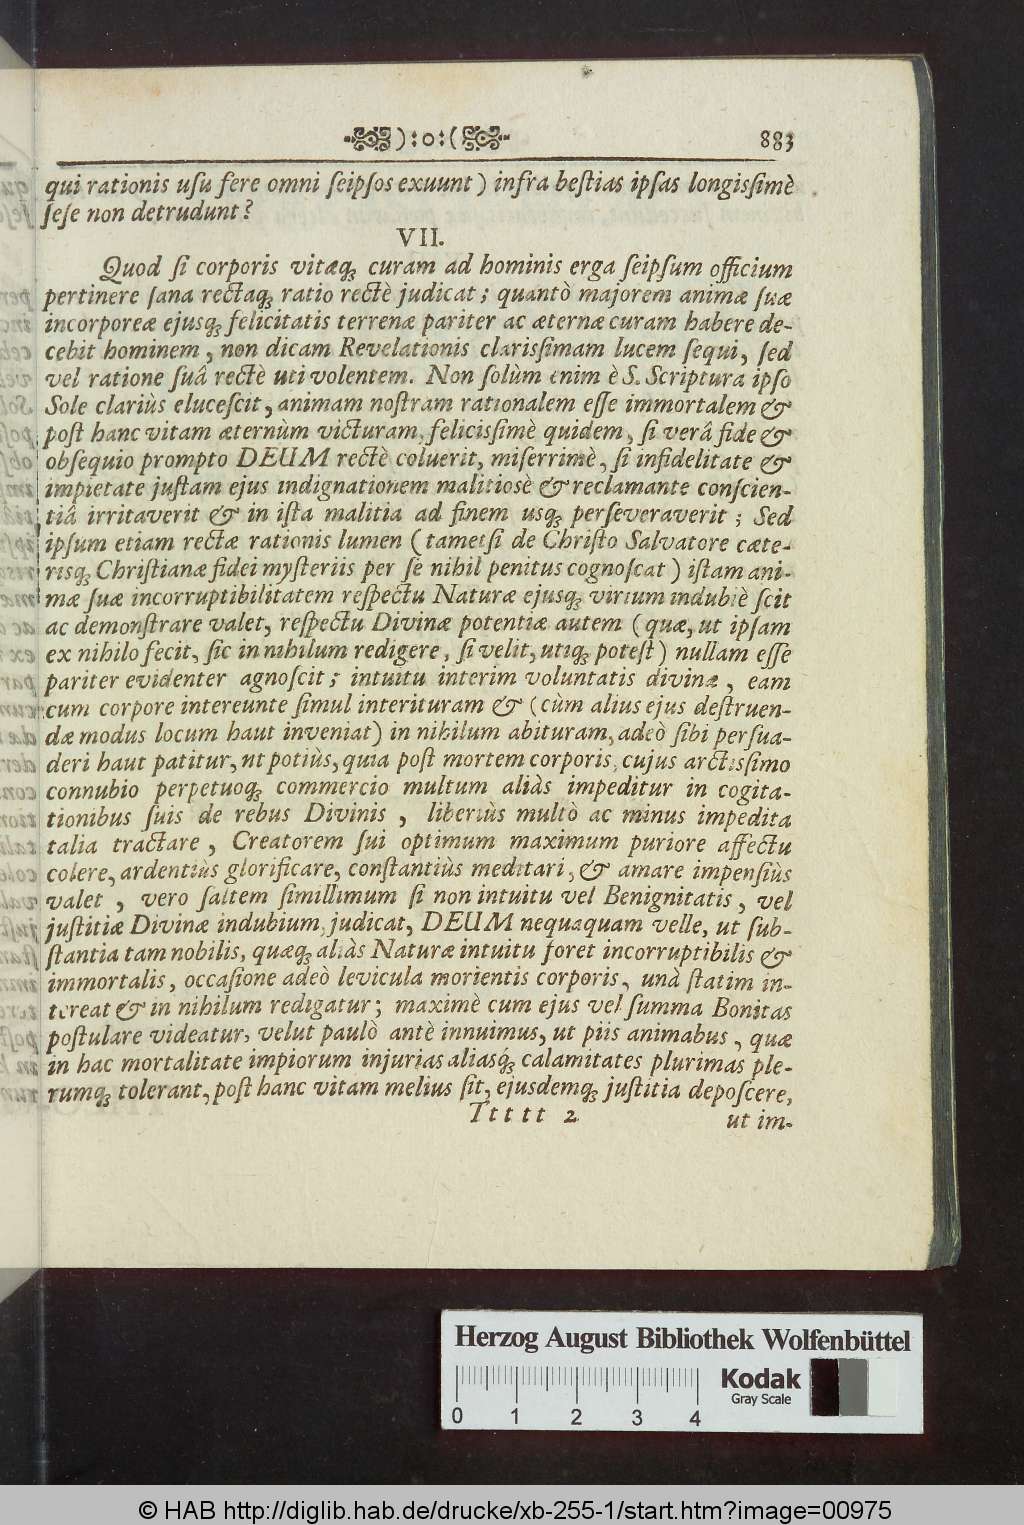 ):o:( 883
qui rationis uſu fere omni ſeipſos exuunt) infra beſtias ipſas longiſſimè
ſeſe non detrudunt?
VII.
Quod ſi corporis vitæqꝫ curam ad hominis erga ſeipſum officium
pertinere ſana rectaqꝫ ratio rectè judicat; quantò majorem animæ ſuæ
incorporeæ ejusqꝫ felicitatis terrenæ pariter ac æternæ curam habere de-
cebit hominem, non dicam Revelationis clariſſimam lucem ſequi, ſed
vel ratione ſuâ rectè uti volentem. Non ſolùm enim è S. Scriptura ipſo
Sole clariùs eluceſcit, animam noſtram rationalem eſſe immortalem &
poſt hanc vitam æternùm victuram, feliciſſimè quidem, ſi verâ fide &
obſequio prompto DEUM rectè coluerit, miſerrimè, ſi infidelitate &
impietate juſtam ejus indignationem malitiosè & reclamante conſcien-
tiâ irritaverit & in iſta malitia ad finem usqꝫ perſeveraverit; Sed
ipſum etiam rectæ rationis lumen (tametſi de Chriſto Salvatore cæte-
risqꝫ Chriſtianæ fidei myſteriis per ſe nihil penitus cognoſcat) iſtam ani-
mæ ſuæ incorruptibilitatem reſpectu Naturæ ejusqꝫ virium indubiè ſcit
ac demonſtrare valet, reſpectu Divinæ potentiæ autem (quæ, ut ipſam
ex nihilo fecit, ſic in nihilum redigere, ſi velit, utiqꝫ poteſt) nullam eſſe
pariter evidenter agnoſcit; intuitu interim voluntatis divinæ, eam
cum corpore intereunte ſimul interituram & (cùm alius ejus deſtruen-
dæ modus locum haut inveniat) in nihilum abituram, adeò ſibi perſua-
deri haut patitur, ut potiùs, quia poſt mortem corporis, cujus arctiſſimo
connubio perpetuoqꝫ commercio multum aliàs impeditur in cogita-
tionibus ſuis de rebus Divinis, liberiùs multò ac minus impedita
talia tractare, Creatorem ſui optimum maximum puriore affectu
colere, ardentiùs glorificare, conſtantiùs meditari, & amare impenſiùs
valet, vero ſaltem ſimillimum ſi non intuitu vel Benignitatis, vel
juſtitiæ Divinæ indubium, judicat, DEUM nequaquam velle, ut ſub-
ſtantia tam nobilis, quæqꝫ aliàs Naturæ intuitu foret incorruptibilis &
immortalis, occaſione adeò levicula morientis corporis, unà ſtatim in-
tereat & in nihilum redigatur; maximè cum ejus vel ſumma Bonitas
poſtulare videatur, velut paulò antè innuimus, ut piis animabus, quæ
in hac mortalitate impiorum injurias aliasqꝫ calamitates plurimas ple-
rumqꝫ tolerant, poſt hanc vitam melius ſit, ejusdemqꝫ juſtitia depoſcere,
Ttttt 2 ut im-
Herzog August Bibliothek Wolfenbüttel
0 1 2 3 4
Kodak
Gray Scale
© HAB http://diglib.hab.de/drucke/xb-255-1/start.htm?image=00975